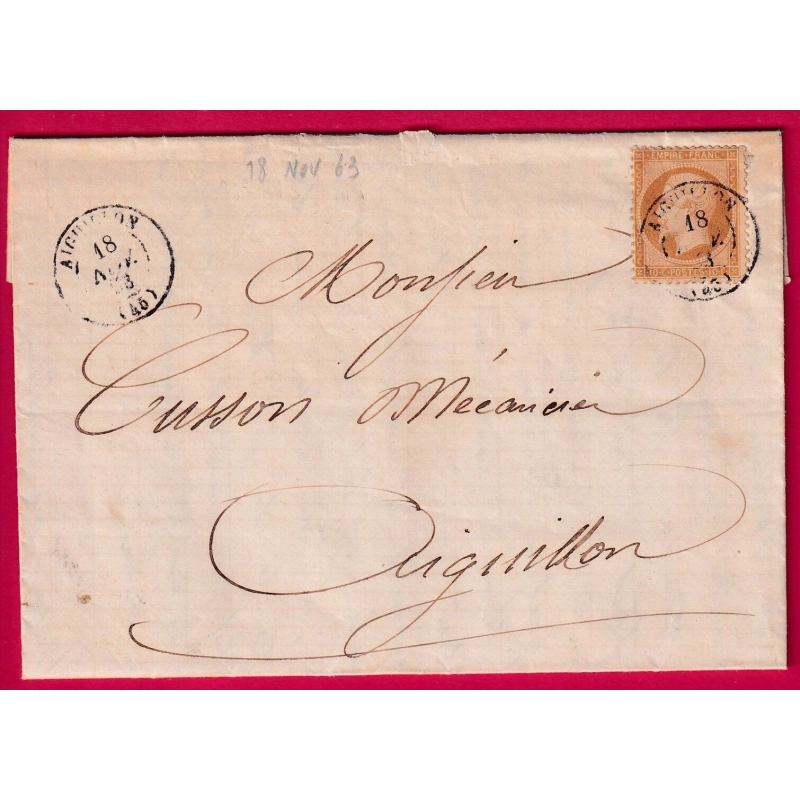 18 Nov 63
EMPIRE FRANC
AIGUILLON
18
(46)
10 C POSTES 10 C
AIGUILLON
18
NOV.
63
(46)
Monsieur
Cusson Mécanicien
Aiguillon